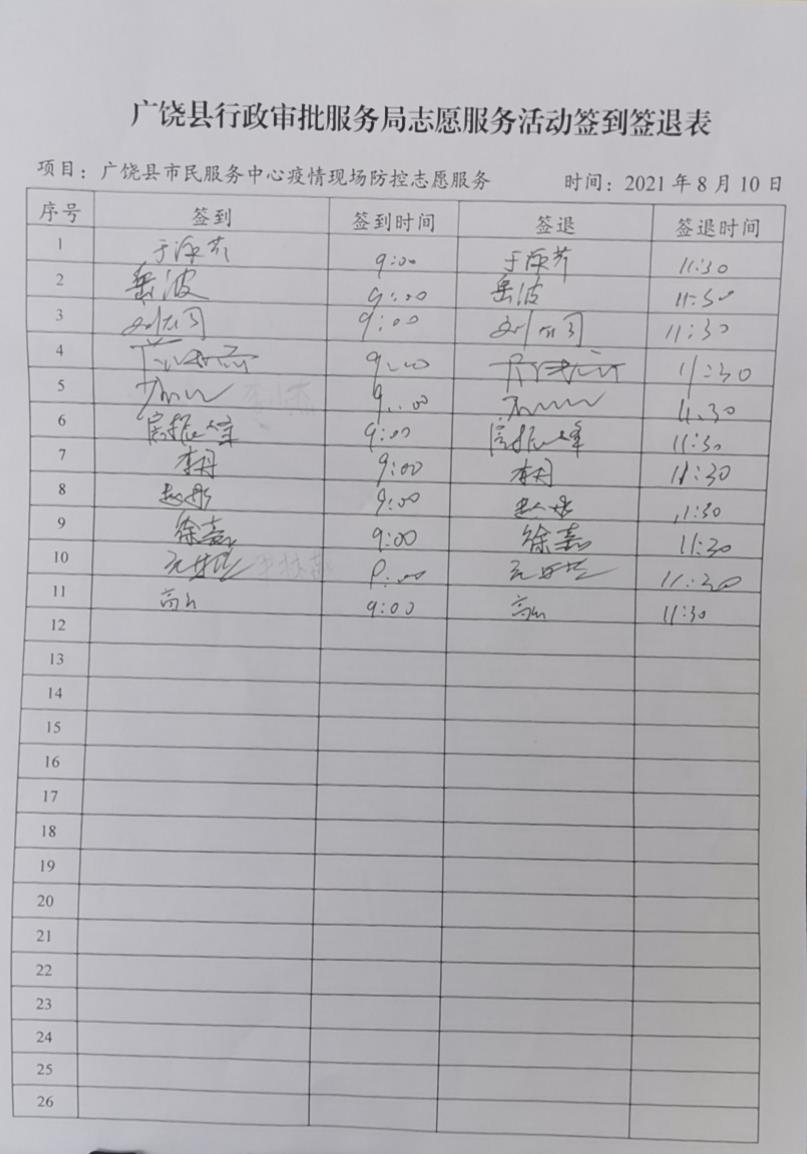 广饶县行政审批服务局志愿服务活动签到签退表
项目：广饶县市民服务中心疫情现场防控志愿服务 时间：2021年8月10日
序号 签到 签到时间 签退 签退时间
1 9:00 11:30
2 岳波 9:00 岳波 11:30
3 9:00 11:30
4 9:00 11:30
5 9:00 11:30
6 9:00 11:30
7 李丹 9:00 李丹 11:30
8 赵彤 9:00 赵彤 11:30
9 徐嘉 9:00 徐嘉 11:30
10 9:00 11:30
11 9:00 11:30
12
13
14
15
16
17
18
19
20
21
22
23
24
25
26